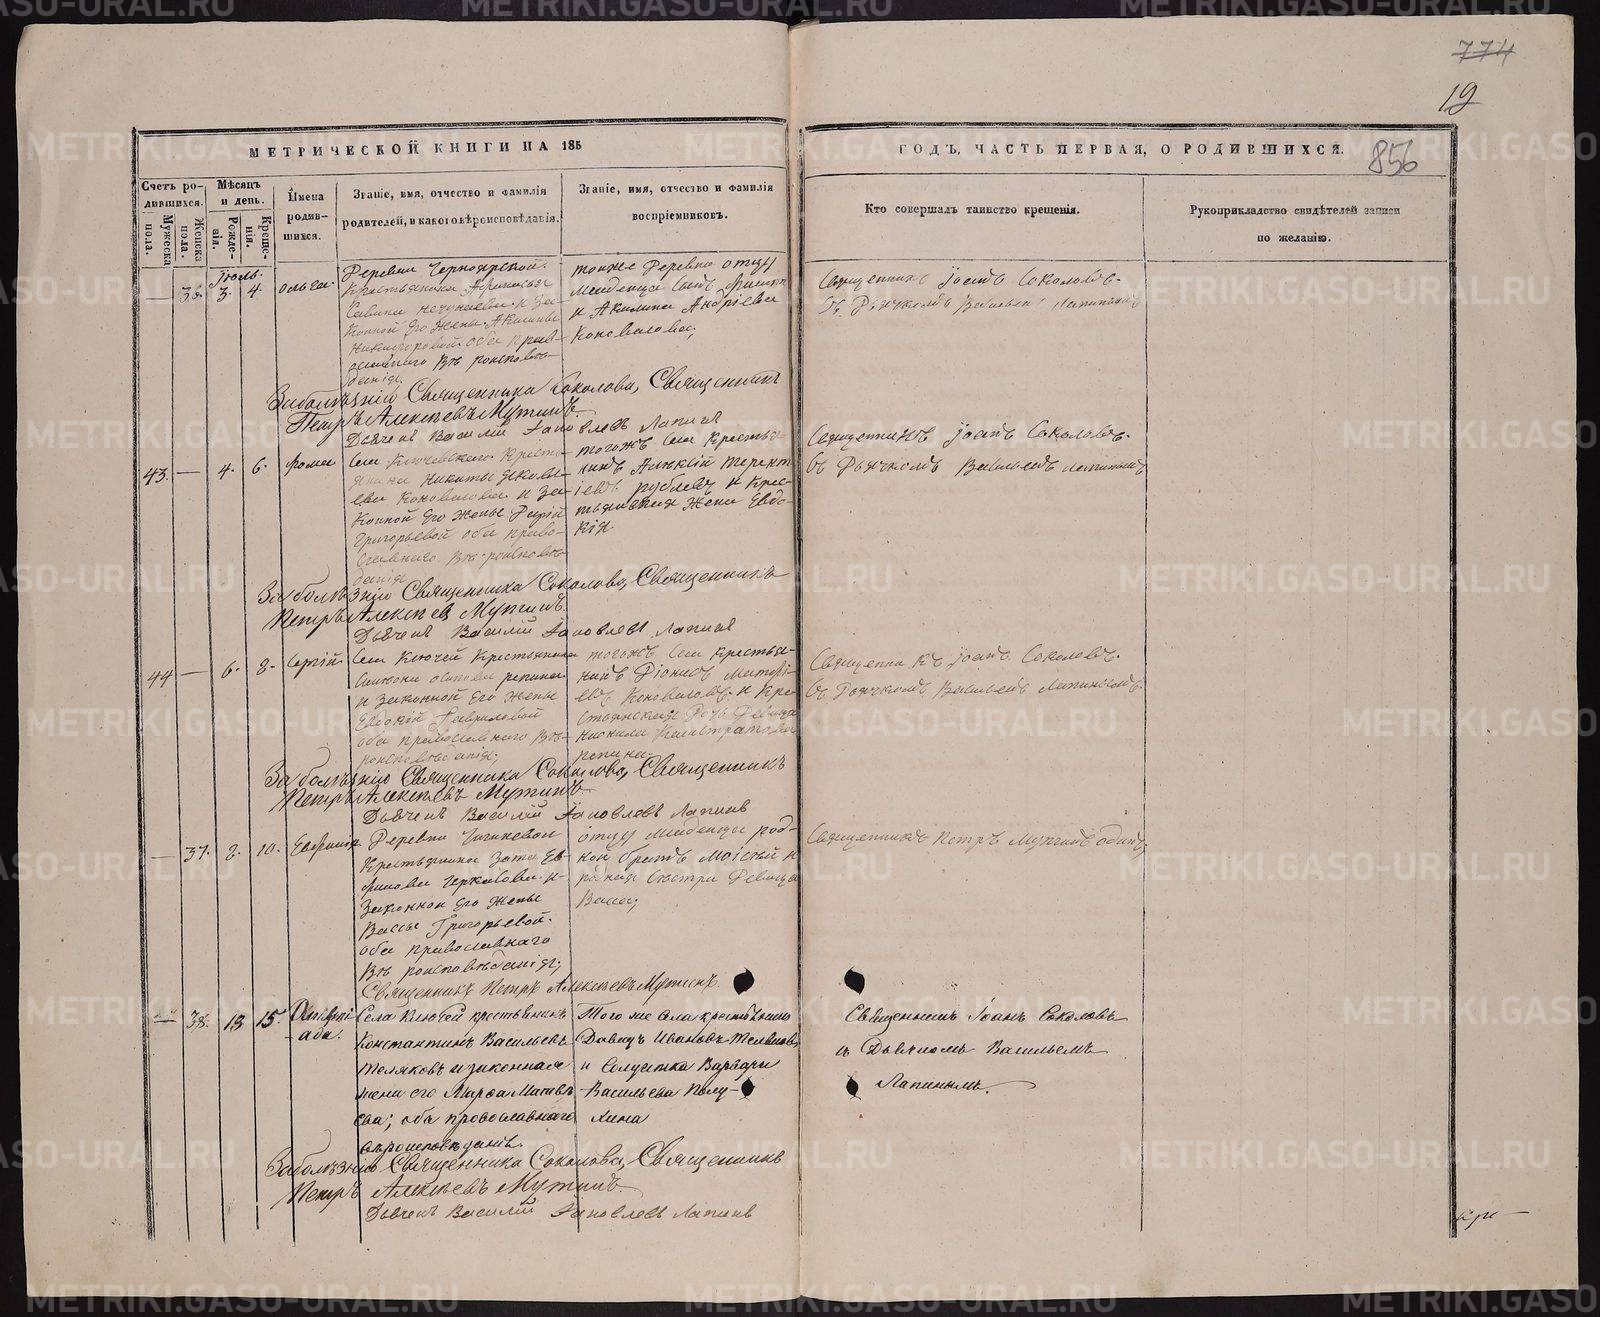 774
19
856
МЕТРИЧЕСКОЙ КНИГИ НА 185
ГОДЪ, ЧАСТЬ ПЕРВАЯ, О РОДИВШИХСЯ.
Счетъ родившихся.
Мужеска пола.
Женска пола.
Мѣсяцъ и день.
Рожденія.
Крещенія.
Имена родившихся.
Званіе, имя, отчество и фамилія
родителей, и какого вѣроисповѣданія.
Званіе, имя, отчество и фамилія
воспріемниковъ.
Кто совершалъ таинство крещенія.
Рукоприкладство свидѣтелей записи
по желанію.
Іюль.
36. 3. 4. Ольга.
Деревни Черноярской
Крестьянина
Савина и за
конной его жены Акилины
Никифоровой оба прав
ославнаго вѣроисповѣ
данія.
тояже деревни отцу
младенца
и Акилина Андріева
Коновалова;
Священникъ Іоаннъ Соколовъ.
съ Дьячкомъ Васильемъ Лапинымъ
За болѣзнію Священника Соколова, Священникъ
Петръ Алексѣевъ Мутинъ.
Дьячекъ Василій Яковлевъ Лапинъ
43. 4. 6. Фома.
Села Ключевскаго Кресть
янина Никиты Яковле
ва Коновалова и за
конной его жены Дарьи
Григорьевой оба право
славнаго вѣроисповѣ
данія
тогожъ села Крестья
нинъ Алексій Терент
іевъ Рублевъ и Крес
тьянская жена Евдо
кія.
Священникъ Іоаннъ Соколовъ.
съ Дьячкомъ Васильемъ Лапинымъ
За болѣзнію Священника Соколова, Священникъ
Петръ Алексѣевъ Мутинъ.
Дьячекъ Василій Яковлевъ Лапинъ
44 6. 8. Сергій.
Села Ключей Крестьянина
Осипова Репина
и законной его жены
Евдокіи Гавриловой
оба православнаго вѣ
роисповѣданія;
тогожъ села Крестья
нинъ Діонисъ
Коноваловъ и Кре
стьянская дочь девица
Репина.
Священникъ Іоаннъ Соколовъ.
съ Дьячкомъ Васильемъ Лапинымъ.
За болѣзнію Священника Соколова, Священникъ
Петръ Алексѣевъ Мутинъ.
Дьячекъ Василій Яковлевъ Лапинъ
37. 8. 10.
Деревни
Крестьянина
и
законной его жены
Вассы Григорьевой.
оба православнаго
вѣроисповѣданія;
отцу младенца род
ной братъ Моисей и
родная сестра девица
Васса;
Священникъ Петръ Мутинъ одинъ.
Священникъ Петръ Алексѣевъ Мутинъ.
38. 13 15.
Села Ключей крестьянинъ
Константинъ Васильевъ
Теляковъ и законная
жена его Марѳа Матвѣ
ева; оба православнаго
вѣроисповѣданія.
Того же села крестьянинъ
Давидъ Ивановъ
и Солдатка Варвара
Васильева Полу-
хина
Священникъ Іоаннъ Соколовъ
и Дьячкомъ Васильемъ
Лапинымъ.
За болѣзнію Священника Соколова, Священникъ
Петръ Алексѣевъ Мутинъ.
Дьячекъ Василій Яковлевъ Лапинъ
METRIKI.GASO-URAL.RU